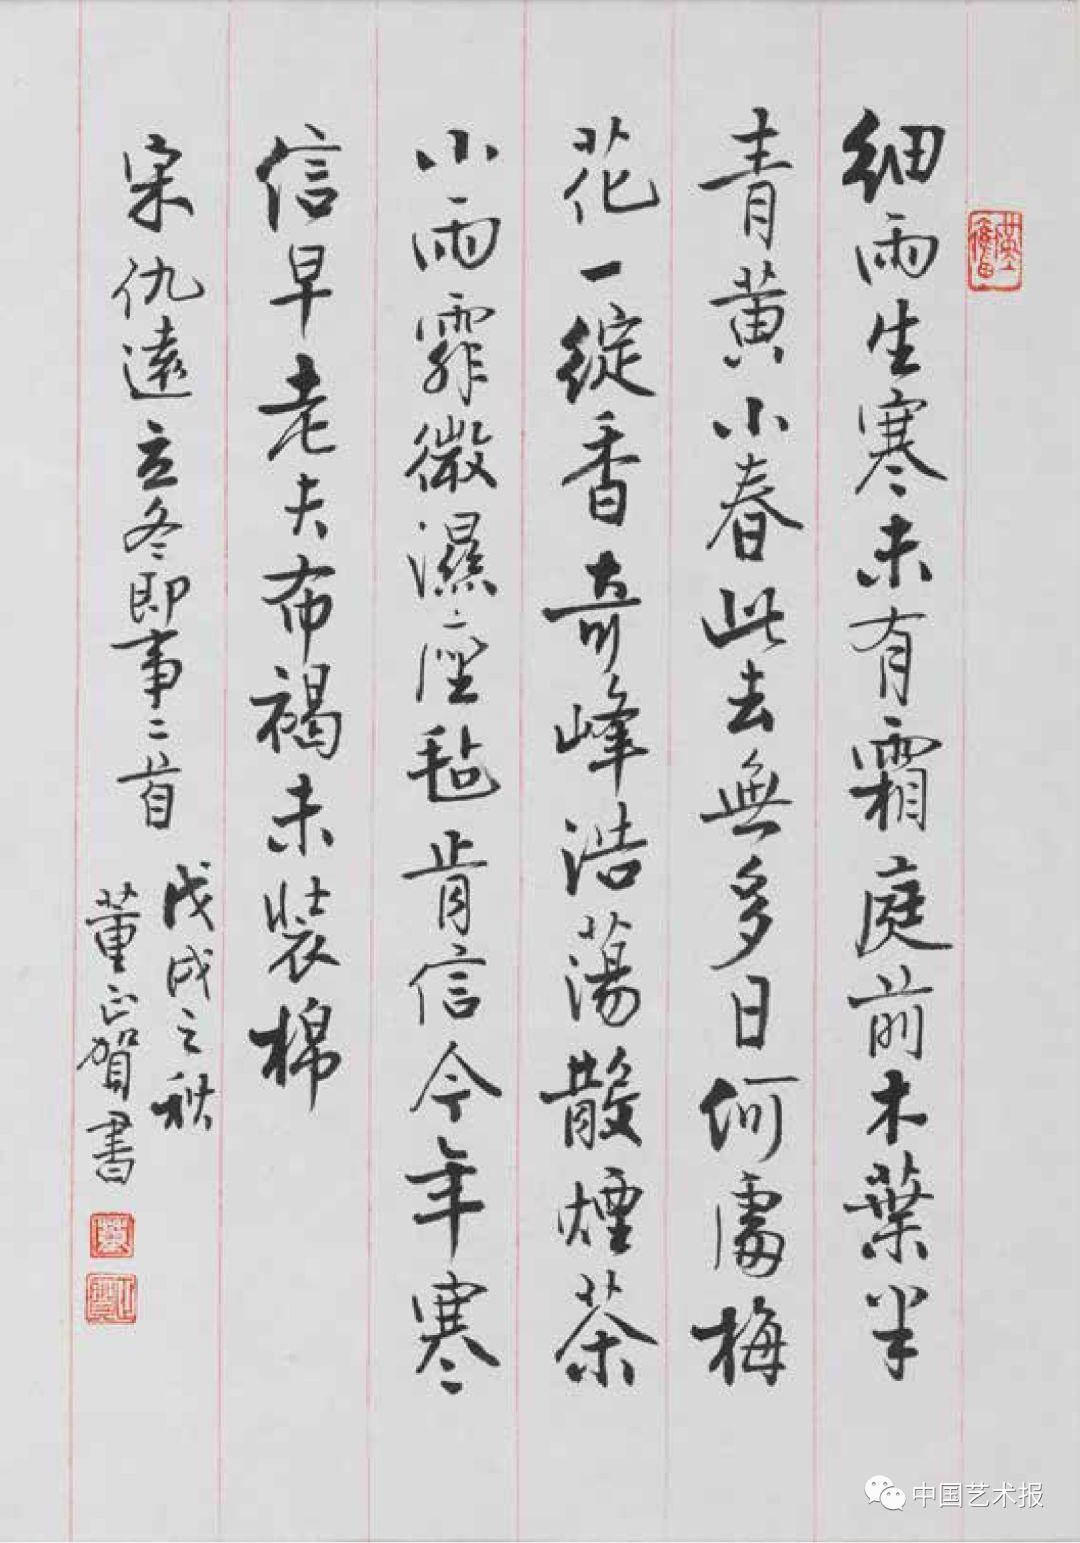 細雨生寒未有霜庭前木葉半
青黄小春此去無多日何處梅
花一綻香奇峰浩蕩散煙茶
小雨霏微濕座毡肯信今年寒
信早老夫布褐未裝棉
宋仇遠立冬即事二首
戊戌之秋
董正賀書
董
正賀
中国艺术报